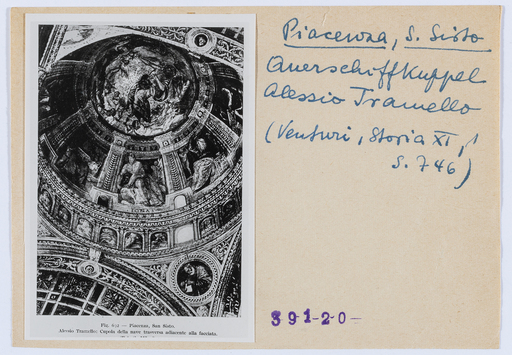 Piacenza, S. Sisto
Querschiffkuppel
Alessio Tramello
(Venturi, Storia XI, 1
S. 746)
39120-
Piacenza, San Sisto.
Alessio Tramello: Cupola della nave trasversa adiacente alla facciata.